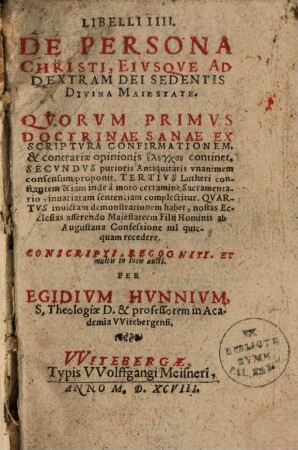 LIBELLI IIII.
DE PERSONA
CHRISTI, EIVSQVE AD
DEXTRAM DEI SEDENTIS
DIVINA MAIESTATE.
QVORVM PRIMVS
DOCTRINAE SANAE EX
SCRIPTVRA CONFIRMATIONEM.
& contrariæ opinionis ἔλεγχον continet,
SECVNDVS purioris Antiquitatis vnanimem
consensum proponit. TERTIVS Lutheri con-
stantem & iam inde à moto certamine Sacramenta-
rio, inuariatam sententiam complectitur. QVAR-
TVS inuictam demonstrationem habet, nostas Ec-
clesias asserendo Maiestatem Filij Hominis ab
Augustana Confessione nil quic-
quam recedere.
CONSCRIPTI, RECOGNITI. ET
multis in locis aucti.
PER
EGIDIVM HVNNIVM,
S, Theologiæ D. & professorem in Aca-
demia VVitebergensi.
VVITEBERGÆ,
Typis VVolffgangi Meisneri,
ANNO M. D. XCVIII.
EX